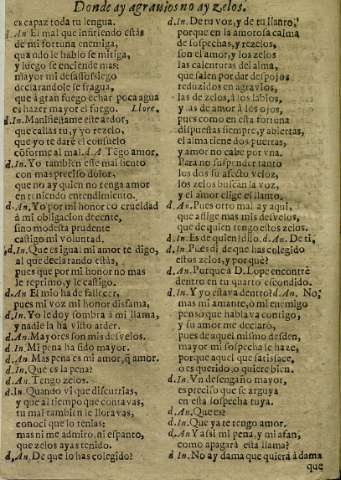 Donde ay agrauios no ay zelos.
es capaz toda tu lengua.
d. An. El mal que infiriendo estás
de mi fortuna enemiga,
quando le habío se mitiga,
y luego se enciende mas:
mayor mi desassossiego
declarandole se fragua,
que á gran fuego echar poca agua
es hazer mayor el fuego. Llore.
d. In. Manifiestame este ardor,
que callas tu, y yo rezelo,
que yo te daré el consuelo
cõforme al mal. d. A. Tẽgo amor.
d. In. Yo tambien este mal siento
con mas preciso dolor,
que no ay quien no tenga amor
en teniendo entendimiento.
d. An. Yo por mi honor co crueldad
á mi obligacion decente,
sino modesta prudente
castigo mi voluntad.
d. In. Que es igual mi amor te digo,
al que declarando estás,
pues que por mi honor no mas
le reprimo, y le castigo.
d. An. El mio ha de fallecer,
pues mi voz mi honor disfama,
d. In. Yo le doy sombra á mi llama,
y nadie la ha visto arder.
d. An. Mayores son mis desvelos.
d. In. Mi pena ha sido mayor.
d. An. Mas pena es mi amor, q̃ amor.
d. In. Qué es la pena?
d. An. Tengo zelos.
d. In. Quando vi que discurrias,
y que al tiempo que contavas,
tu mal tambien le lloravas,
conoci que lo tenias:
mas ni me admiro, ni espanto,
que zelos ayas tenido.
d. An. De que lo has colegido?
d. In. De tu voz, y de tu llanto,
porque en la amorosa calma
de sospechas, y rezelos,
son el amor, y los zelos
las calenturas del alma.
que salen por dar despojos
reduzidos en agravios,
las de zelos, á los labios,
y las de amor á los ojos,
pues como en esta fortuna
dispuestas siempre, y abiertas,
el alma tiene dos puertas,
y amor no cabe por vna.
Para no suspender tanto
los dos su afecto veloz,
los zelos buscan la voz,
y el amor elige el llanto.
d. An. Pues otro mal ay aqui,
que aflige mas mis desvelos,
que de quien tengo estos zelos.
d. In. Es de quien? dilo. d. An. De ti,
d. In. Pues di de que has colegido
estos zelos, y porqué?
d. An. Porque á D. Lope encontré
dentro en tu quarto escondido.
d. In. Y yo estava dentro? d. An. No,
mas mi amante, o mi enemigo
penso que hablava contigo,
y su amor me declaró,
pues de aquel mismo desden,
mayor mi sospecha se haze,
porque aquel que satisface,
o es querido, o quiere bien.
d. In. Vn desengaño mayor,
es preciso que se arguya
en esta sospecha tuya.
d. An. Que es?
d. In. Que ya te tengo amor.
d. An. Y assi mi pena, y mi afan,
como apagará esta llama?
d. In. No ay dama que quiera á dama
que